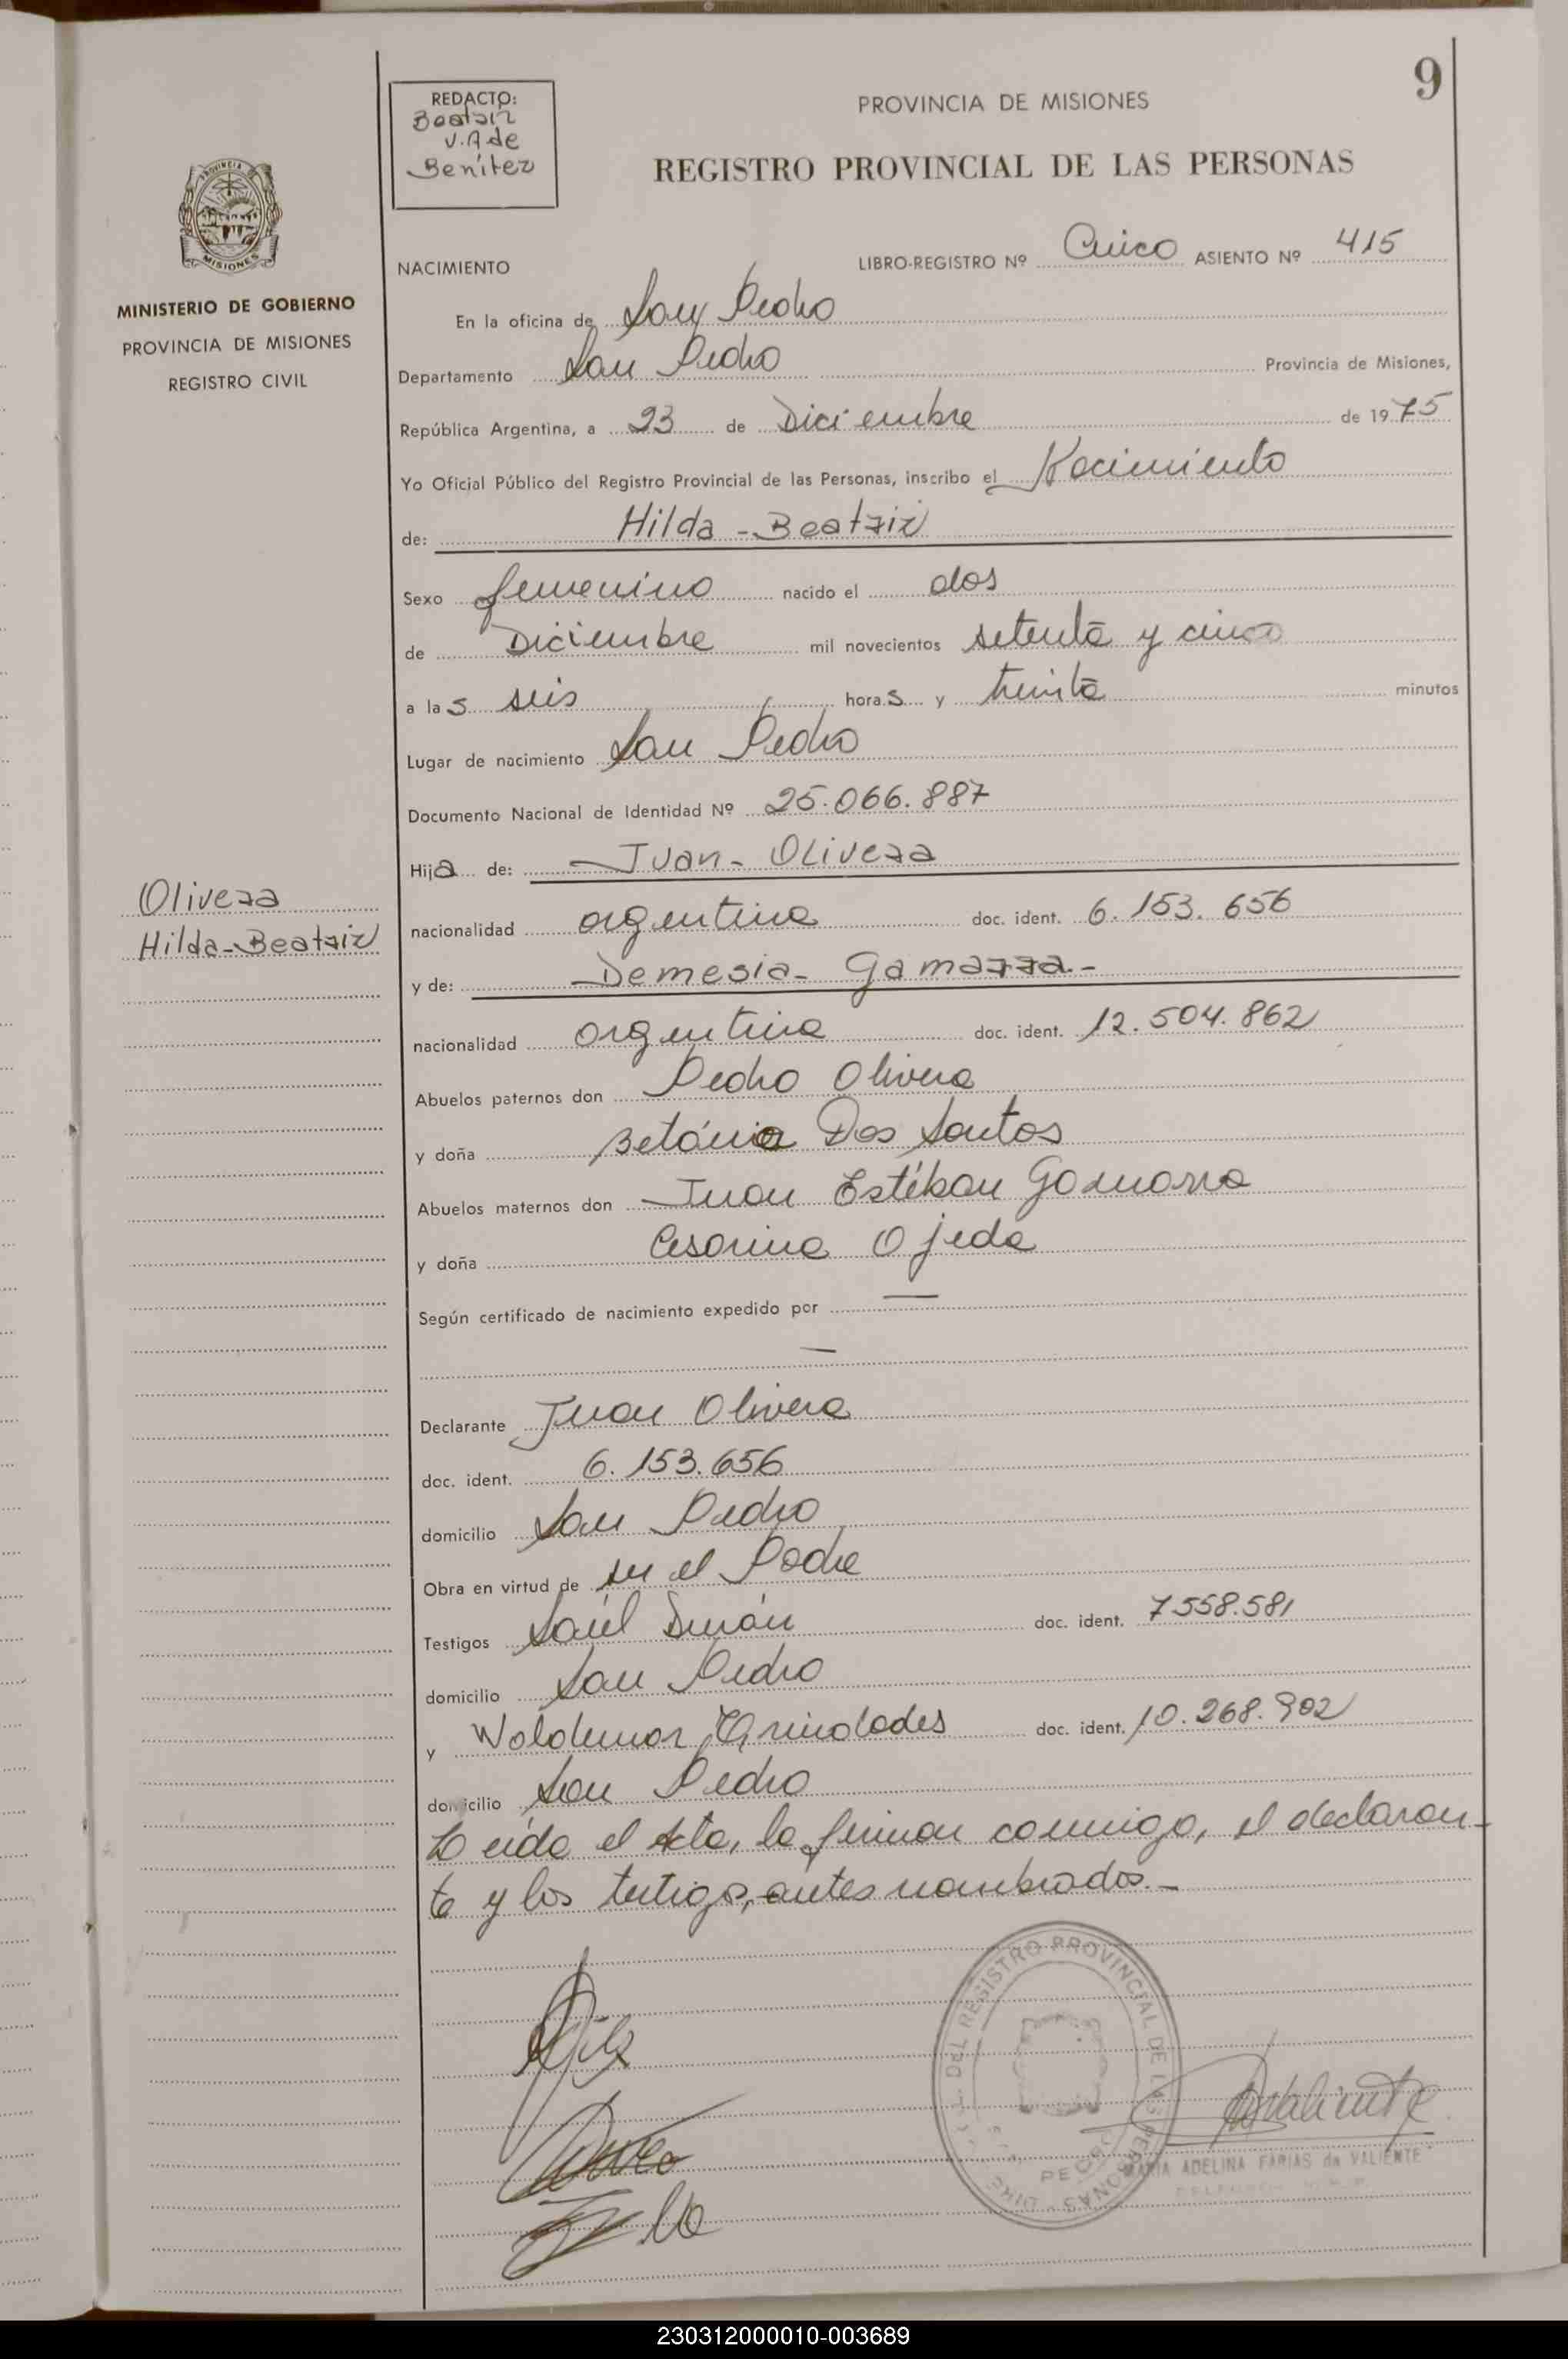 9
REDACTO:
Beatriz
V. A de
Benítez
PROVINCIA DE MISIONES
REGISTRO PROVINCIAL DE LAS PERSONAS
PROVINCIA
MISIONES
MINISTERIO DE GOBIERNO
PROVINCIA DE MISIONES
REGISTRO CIVIL
NACIMIENTO LIBRO-REGISTRO Nº Cinco ASIENTO Nº 415
En la oficina de San Pedro
Departamento San Pedro Provincia de Misiones,
República Argentina, a 23 de Diciembre de 1975
Yo Oficial Público del Registro Provincial de las Personas, inscribo el Nacimiento
de: Hilda - Beatriz
Sexo femenino nacido el dos
de Diciembre mil novecientos setenta y cinco
a las seis horas y treinta minutos
Lugar de nacimiento San Pedro
Documento Nacional de Identidad Nº 25.066.887
Hija de: Juan - Olivera
Olivera
Hilda - Beatriz
nacionalidad argentina doc. ident. 6.153.656
y de: Demesia - Gamarra.-
nacionalidad argentina doc. ident. 12.504.862
Abuelos paternos don Pedro Olivera
y doña Betónia Dos Santos
Abuelos maternos don Juan Estéban Gamarra
y doña Cesarina Ojeda
Según certificado de nacimiento expedido por —
—
Declarante Juan Olivera
doc. ident. 6.153.656
domicilio San Pedro
Obra en virtud de ser el Padre
Testigos Saúl Durán doc. ident. 7558.581
domicilio San Pedro
y Waldemar Trindades doc. ident. 10.268.902
domicilio San Pedro
Leída el Acta, la firman conmigo, el declaran-
te y los testigos, antes nombrados.-
DEL REGISTRO PROVINCIAL DE LAS PERSONAS
PEDRO
MARIA ADELINA FARIAS de VALIENTE
230312000010-003689